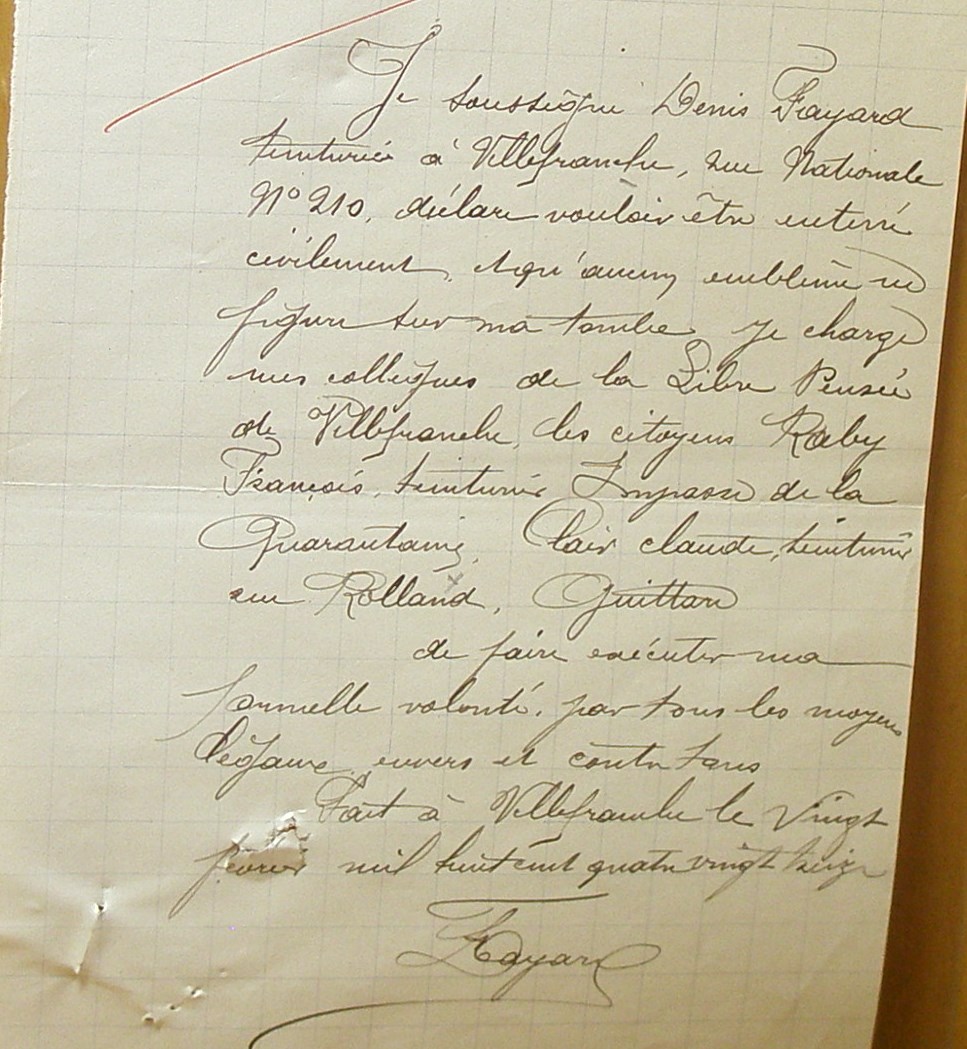 Je soussigné Denis Fayard
teinturier à Villefranche, rue Nationale
N° 210, déclare vouloir être enterré
civilement, et qu'aucun emblème ne
figure sur ma tombe. Je charge
mes collègues de la Libre Pensée
de Villefranche, les citoyens Raby
François, teinturier Impasse de la
Quarantaine, Clair claude, teinturier
rue Rolland, Guittard
de faire exécuter ma
formelle volonté, par tous les moyens
légaux, envers et contre tous
Fait à Villefranche le vingt
février mil huit cent quatre vingt seize
Fayard